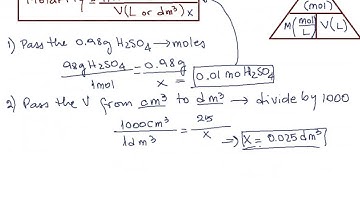 V(L or dm³)x
(mol)
M(mol/L) V(L)
1) Pass the 0.98g H₂SO₄ → moles
98g H₂SO₄ / 1mol = 0.98g / x
0.01 mo H₂SO₄
2) Pass the V from cm³ to dm³ → divide by 1000
1000cm³ / 1dm³ = 25 / x → X = 0.025 dm³